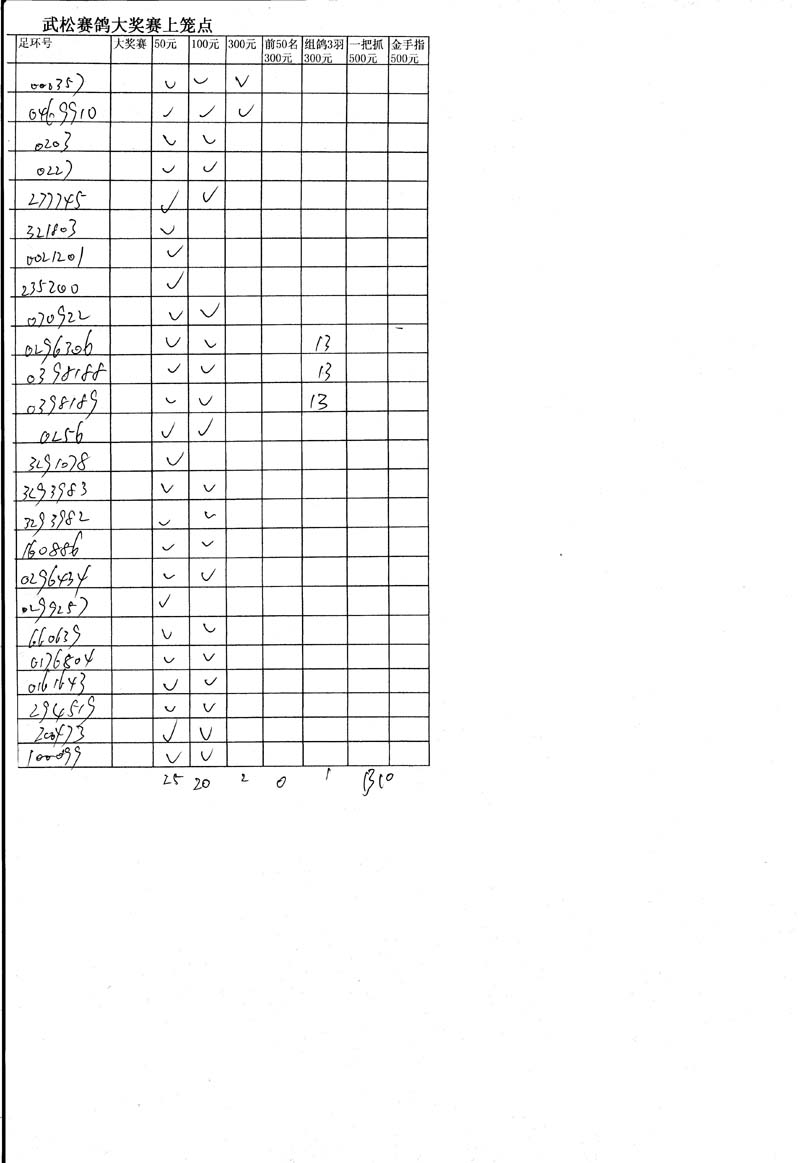 武松赛鸽大奖赛上笼点
足环号 大奖赛 50元 100元 300元 前50名300元 组鸽3羽300元 一把抓500元 金手指500元
000357 ✓ ✓ ✓
0469910 ✓ ✓ ✓
0203 ✓ ✓
0227 ✓ ✓
277745 ✓ ✓
321803 ✓
0021201 ✓
235200 ✓
070922 ✓ ✓
0296306 ✓ ✓ 13
0398188 ✓ ✓ 13
0398189 ✓ ✓ 13
0256 ✓ ✓
3291078 ✓
3293983 ✓ ✓
3293982 ✓ ✓
160886 ✓ ✓
0296434 ✓ ✓
0299257 ✓
660639 ✓ ✓
0176804 ✓ ✓
0161643 ✓ ✓
294519 ✓ ✓
200473 ✓ ✓
100099 ✓ ✓
25 20 2 0 1